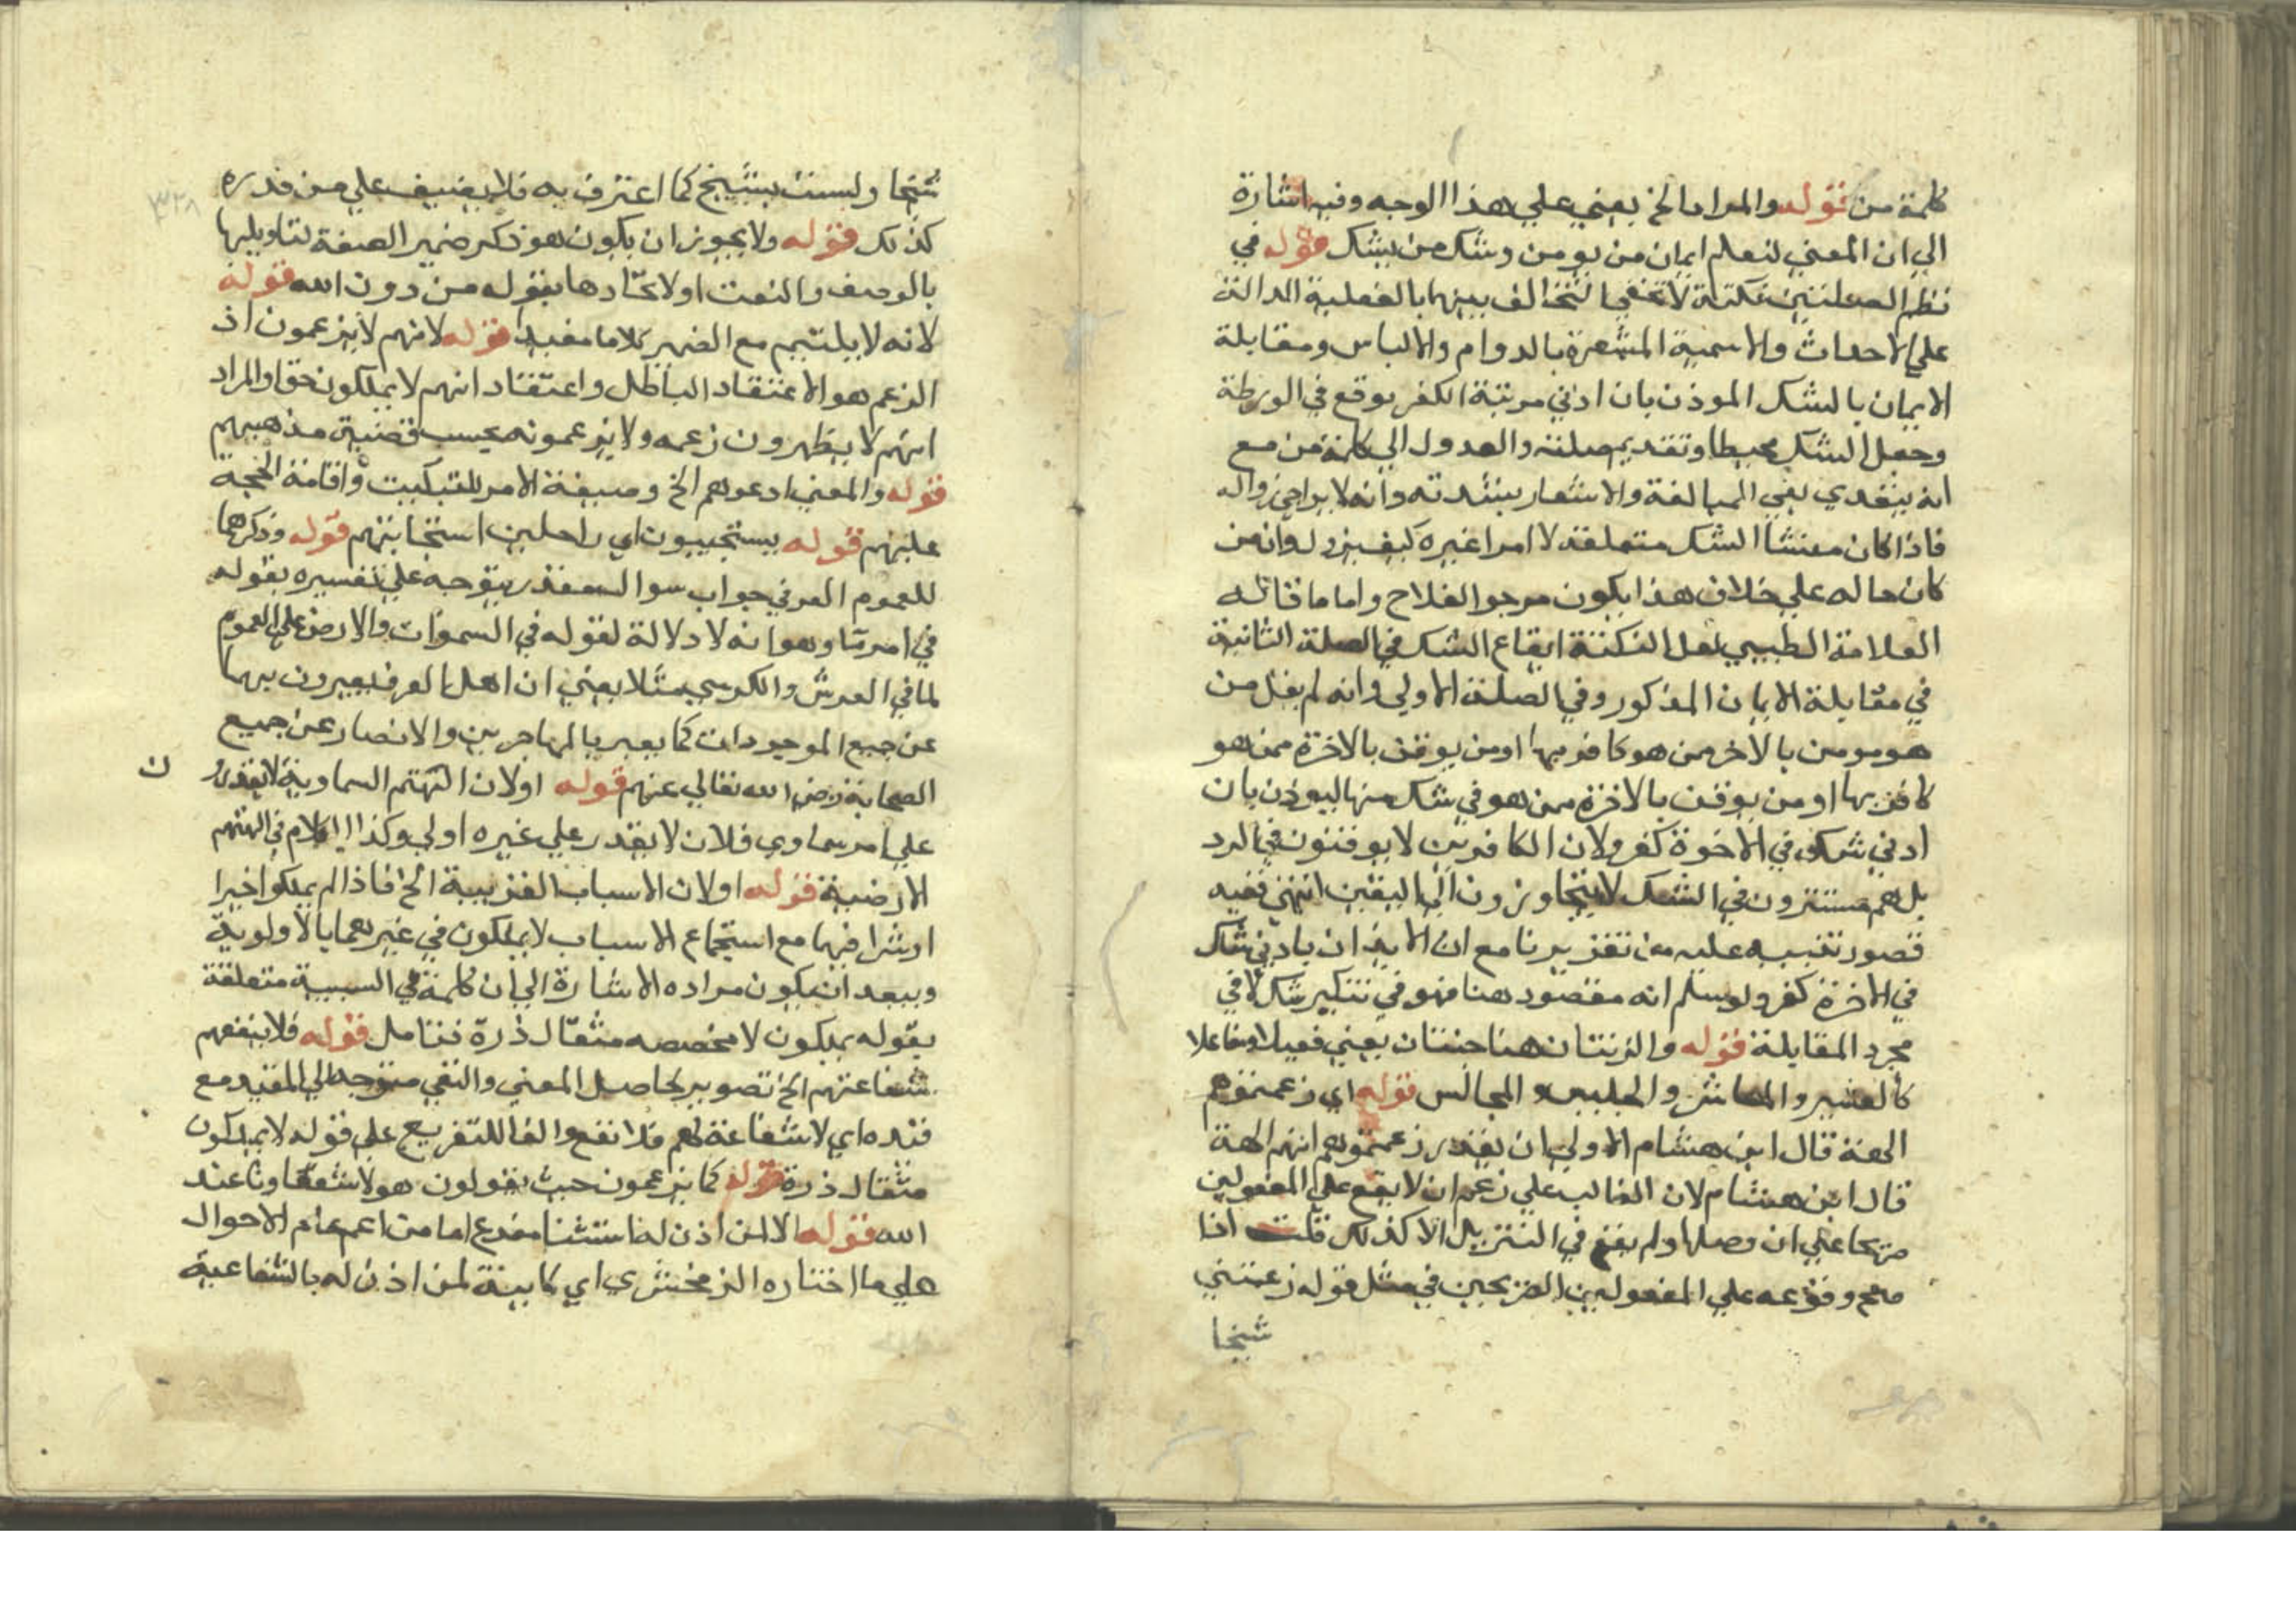 كلمة من قوله والمراد الخ يعني علي هذا الوجه وفيه اشارة
الي ان المعني لنعلم ايمان من يومن وشك من يشك قوله في
نظم الصلتين نكتة لا تخفي التخالف بينهما بالفعلية الدالة
علي الاحداث والاسمية المشعرة بالدوام والالباس ومقابلة
الايمان بالشك الموذن بان ادني مرتبة الكفر يوقع في الورطة
وجعل الشك محيطا وتقديم صلته والعدول الي كلمة من مع
انه يتعدي بفي المبالغة والاشعار بشدته وانه لا يراجي زواله
فاذا كان منشا الشك متعلقه لا امرا غيره كيف يزول وانه من
كان حاله علي خلاف هذا يكون مرجو الفلاح واما ما قاله
العلامة الطيبي لعل النكتة ايقاع الشك في الصلة الثانية
في مقابلة الايمان المذكور وفي الصلة الاولي وانه لم يقل من
هو مومن بالاخر ممن هو كافر بها او من يوقن بالاخرة ممن هو
كافر بها او من يوقن بالاخرة ممن هو في شك منها ليوذن بان
ادني شك في الاخرة كفر ولان الكافرين لا يوقنون في الرد
بل هم مستقرون في الشك لا يتجاوزون الي اليقين انتهي ففيه
قصور تنبيه عليه من تقريرنا مع ان الايذان بادني شك
في الاخرة كفر ولو سلم انه مقصود هنا فهو في تنكير شك لا في
مجرد المقابلة قوله والزنتان هنا حنتان يعني فعيلا ومفاعلا
كالعشير والمعاشر والجليس والمجالس قوله اي زعمتموهم
الهة قال ابن هشام الاولي ان يقدر زعمتموهم انهم الهة
قال ابن هشام لان الغالب علي زعم ان لا يقع علي المفعولين
صريحا علي ان وصلها ولم يقع في التنزيل الا كذلك قلت اذا
صح وقوعه علي المفعولين الصريحين في مثل قوله زعمتني
شيخا
شيخا ولست بشيخ كما اعترف به فلا يضيف علي من قدره
كذلك قوله ولا يجوز ان يكون هو ذكر ضمير الصفة لتاويلها
بالوصف والنعت او لاتحادها بقوله من دون الله قوله
لانه لا يلتيم مع الضمير كلاما مفيدا قوله لانهم لا يزعمون اذ
الزعم هو الاعتقاد الباطل واعتقاد انهم لا يملكون حق والمراد
انهم لا يظهرون زعمه ولا يزعمونه بحسب قضية مذهبهم
قوله والمعني ادعوهم الخ وصيغة الامر للتبكيت واقامة الحجة
عليهم قوله يستجيبون اي راجلين استجابتهم قوله وذكرهما
للعموم العرفي جواب سوال مقدر يتوجه علي تفسيره بقوله
في امر ما وهو انه لا دلالة لقوله في السموات والارض علي العموم
لما في العرش والكرسي مثلا يعني ان اهل العرف يعبرون بهما
عن جميع الموجودات كما يعبر بالمهاجرين والانصار عن جميع
الصحابة رضي الله تعالي عنهم قوله اولان الهتهم السماوية لا تقدر ن
علي امر سماوي فلان لا يقدر علي غيره اولي وكذا الكلام في الهتهم
الارضية قوله اولان الاسباب القريبة الخ فاذا لم يملكوا خيرا
او شرا فيهما مع استجماع الاسباب لا يملكون في غيرهما بالاولوية
ويبعد ان يكون مراده الاشارة الي ان كلمة في السببية متعلقة
بقوله يملكون لا مخصصه مثقال ذرة فتامل قوله فلا ينفعهم
شفاعتهم الخ تصوير لحاصل المعني والنفي متوجه الي المقيد مع
قيده اي لا شفاعة لهم فلا نفع والفا للتفريع علي قوله لا يملكون
مثقال ذرة قوله كما يزعمون حيث يقولون هولا شفعاونا عند
الله قوله الا لمن اذن له استثنا مفرغ اما من اعم عام الاحوال
علي ما اختاره الزمخشري اي كاينة لمن اذن له بالشفاعية